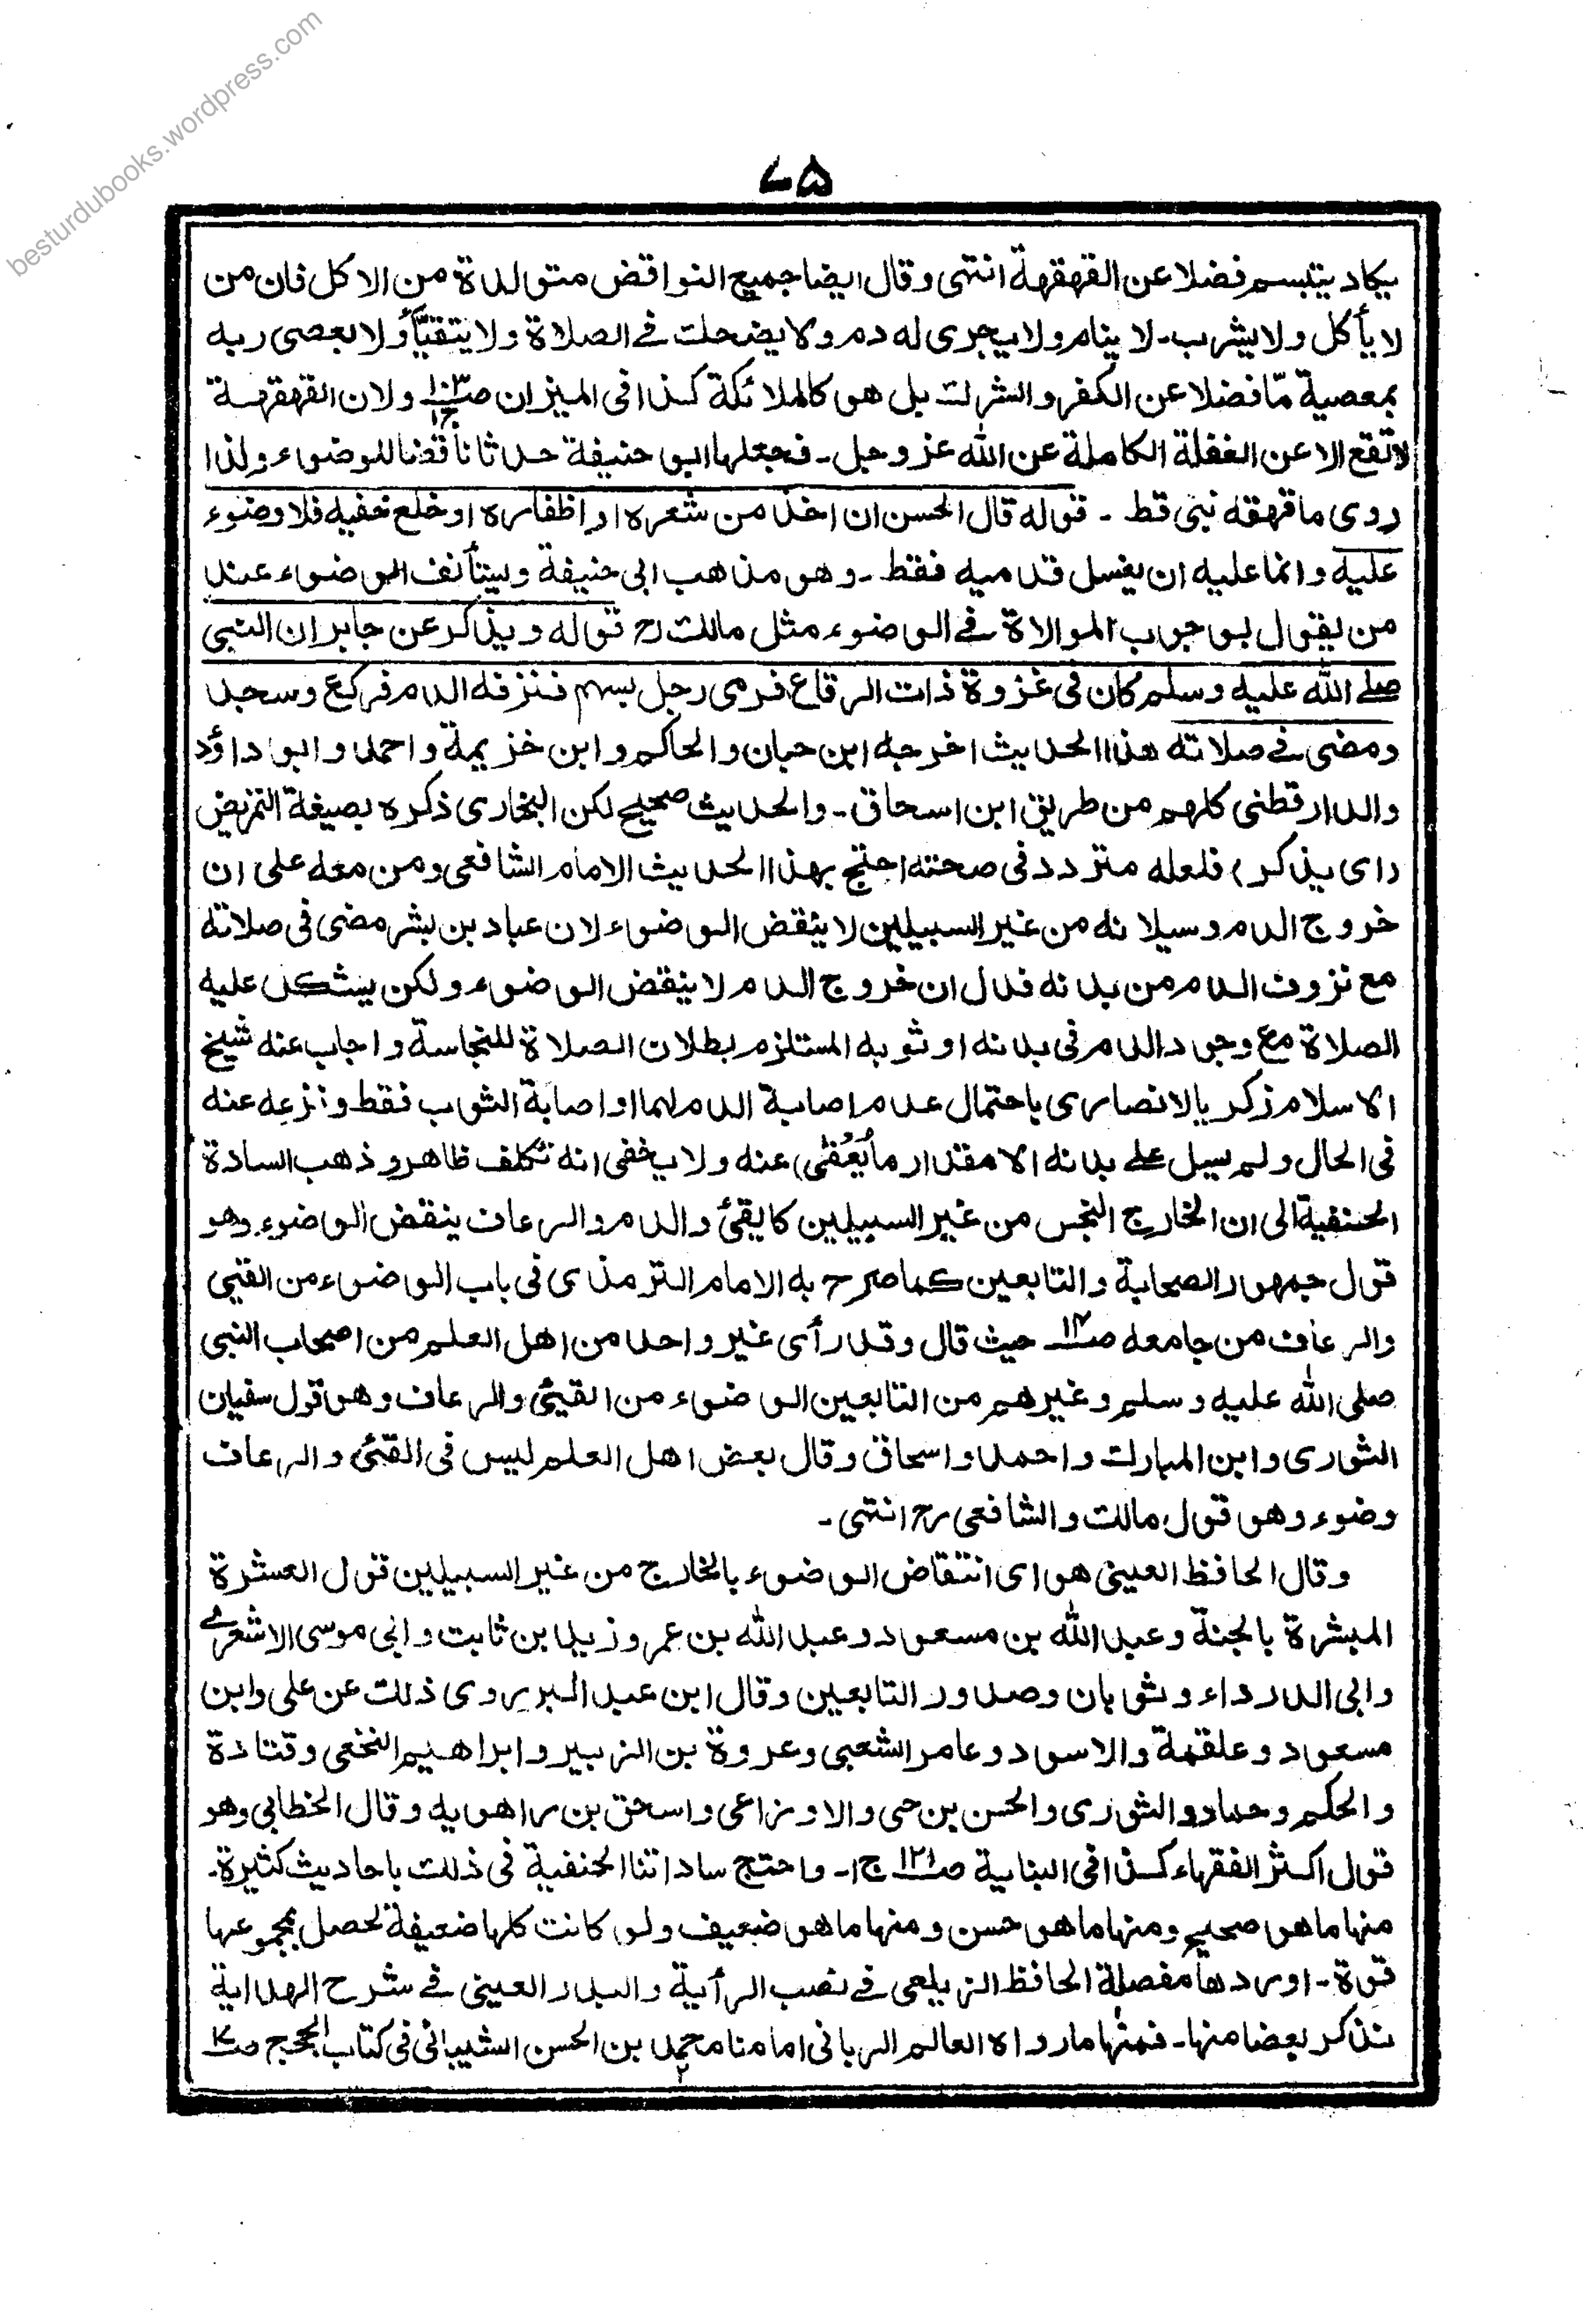 besturdubooks.wordpress.com
٧٥
يكاد يتبسم فضلا عن القهقهة انتهى وقال ايضا جميع النواقض متولدة من الاكل فان من
لا يأكل ولا يشرب۔ لا ينام ولا يجرى له دم ولا يضحك فى الصلاة ولا يتقيّأ ولا يعصى ربه
بمعصية مّا فضلا عن الكفر والشرك بل هو كالملائكة كذا فى الميزان صـ١٠٣ ج١ ولان القهقهة
لا تقع الا عن الغفلة الكاملة عن الله عز وجل۔ فجعلها ابو حنيفة حدثا ناقضا للوضوء ولذا
روى ما قهقه نبى قط ۔ قوله قال الحسن ان اخذ من شعره او اظفاره او خلع خفيه فلا وضوء
عليه وانما عليه ان يغسل قدميه فقط ۔ وهو مذهب ابى حنيفة ويستأنف الوضوء عند
من يقول بوجوب الموالاة فى الوضوء مثل مالك رح قوله ويذكر عن جابر ان النبى
صلے الله عليه وسلم كان فى غزوة ذات الرقاع فرمى رجل بسهم فنزفه الدم فركع وسجد
ومضى فى صلاته هذا الحديث اخرجه ابن حبان والحاكم وابن خزيمة واحمد وابو داؤد
والدارقطنى كلهم من طريق ابن اسحاق ۔ والحديث صحيح لكن البخارى ذكره بصيغة التمريض
(اى يذكر) فلعله متردد فى صحته احتج بهذا الحديث الامام الشافعى ومن معه على ان
خروج الدم وسيلانه من غير السبيلين لا ينقض الوضوء لان عباد بن بشر مضى فى صلاته
مع نزوف الدم من بدنه فدل ان خروج الدم لا ينقض الوضوء ولكن يشكل عليه
الصلاة مع وجود الدم فى بدنه او ثوبه المستلزم بطلان الصلاة للنجاسة واجاب عنه شيخ
الاسلام زكريا الانصارى باحتمال عدم اصابة الدم لهما او اصابة الثوب فقط ونزعه عنه
فى الحال ولم يسل علے بدنه الا مقدار ما يُعْفٰى) عنه ولا يخفى انه تكلف ظاهر وذهب السادة
الحنفية الى ان الخارج النجس من غير السبيلين كالقئ والدم والرعاف ينقض الوضوء وهو
قول جمهور الصحابة والتابعين كما صرح به الامام الترمذى فى باب الوضوء من القيئ
والرعاف من جامعه صـ١٣ حيث قال وقد رأى غير واحد من اهل العلم من اصحاب النبى
صلى الله عليه وسلم وغيرهم من التابعين الوضوء من القيئ والرعاف وهو قول سفيان
الثورى وابن المبارك واحمد واسحاق وقال بعض اهل العلم ليس فى القئ والرعاف
وضوء وهو قول مالك والشافعى رح انتهى ۔
وقال الحافظ العينى هو اى انتقاض الوضوء بالخارج من غير السبيلين قول العشرة
المبشرة بالجنة وعبد الله بن مسعود وعبد الله بن عمر وزيد بن ثابت وابى موسى الاشعرى
وابى الدرداء وثوبان وصدور التابعين وقال ابن عبد البر يروى ذلك عن على وابن
مسعود وعلقمة والاسود وعامر الشعبى وعروة بن الزبير وابراهيم النخعى وقتادة
والحكم وحماد والثورى والحسن بن حى والاوزاعى واسحق بن راهويه وقال الخطابى وهو
قول اكثر الفقهاء كذا فى البناية صـ١٢١ ج١۔ واحتج ساداتنا الحنفية فى ذلك باحاديث كثيرة۔
منها ما هو صحيح ومنها ما هو حسن ومنها ما هو ضعيف ولو كانت كلها ضعيفة لحصل بمجموعها
قوة ۔ اوردها مفصلة الحافظ الزيلعى فى نصب الرأية والبدر العينى فى شرح الهداية
نذكر بعضا منها۔ فمنها ما رواه العالم الربانى امامنا محمد بن الحسن الشيبانى فى كتاب الحجج صـ
٢